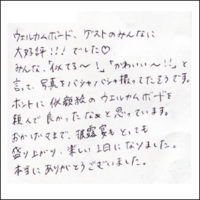 ウェルカムボード、ゲストのみんなに
大好評!!!でした♡
みんな、「似てる〜!」「かわいい〜!!」と
言って、写真をバシャバシャ撮ってたそうです。
ホントに似顔絵のウェルカムボードを
頼んで良かったなぁと思っています。
おかげさまで、披露宴もとても
盛り上がり、楽しい1日になりました。
本当にありがとうございました。